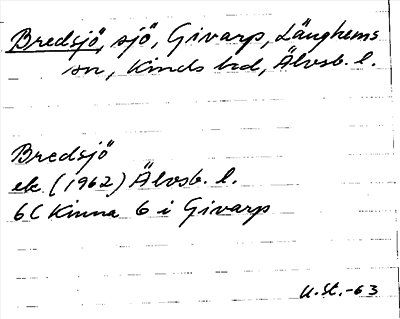 Bredsjö, sjö, Givarp, Länghems
sn, Kinds hd, Älvsb. l.
Bredsjö
ek. (1962) Älvsb. l.
6C Kinna 6 i Givarp
U.St.-63